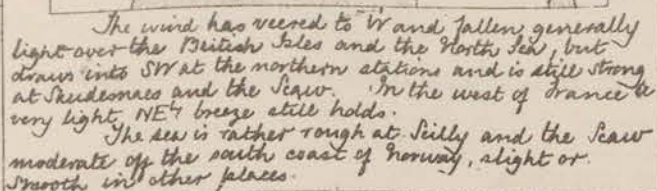 The wind has veered to W and fallen generally
light over the British Isles and the North Sea, but
draws into SW at the northern stations and is still strong
at Skudesnaes and the Scaw. In the west of France a
very light NEly breeze still holds.
The sea is rather rough at Scilly and the Scaw
moderate off the south coast of Norway, slight or
smooth in other places.